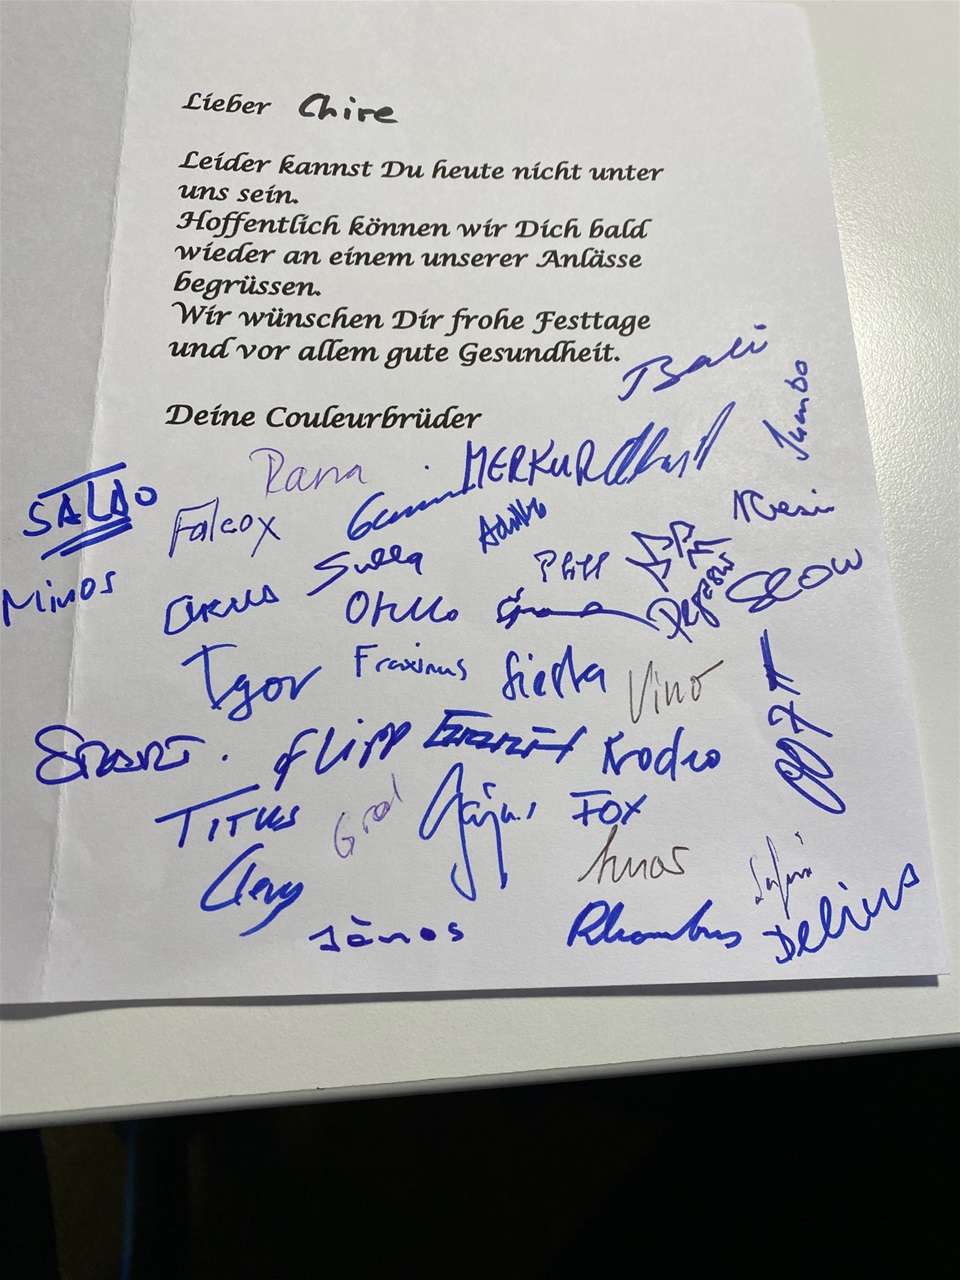 Lieber Chire
Leider kannst Du heute nicht unter
uns sein.
Hoffentlich können wir Dich bald
wieder an einem unserer Anlässe
begrüssen.
Wir wünschen Dir frohe Festtage
und vor allem gute Gesundheit.
Deine Couleurbrüder
Bali
Jumbo
Rana
MERKUR
SALDO
Falcox
Minos
Sulla
Pfiff
Slow
Otello
Igor
Fraximus
Siesta
Vino
Flipp
Krodeo
TITUS
Gral
FOX
Amor
Cleny
Jànos
Rhombus
Delius